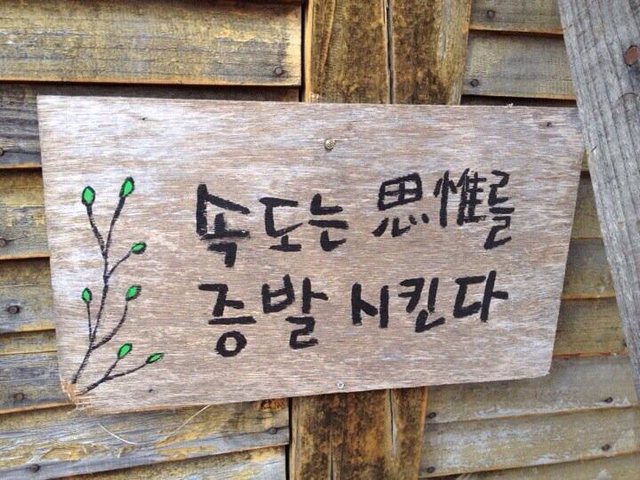 속도는 思惟를
증발 시킨다